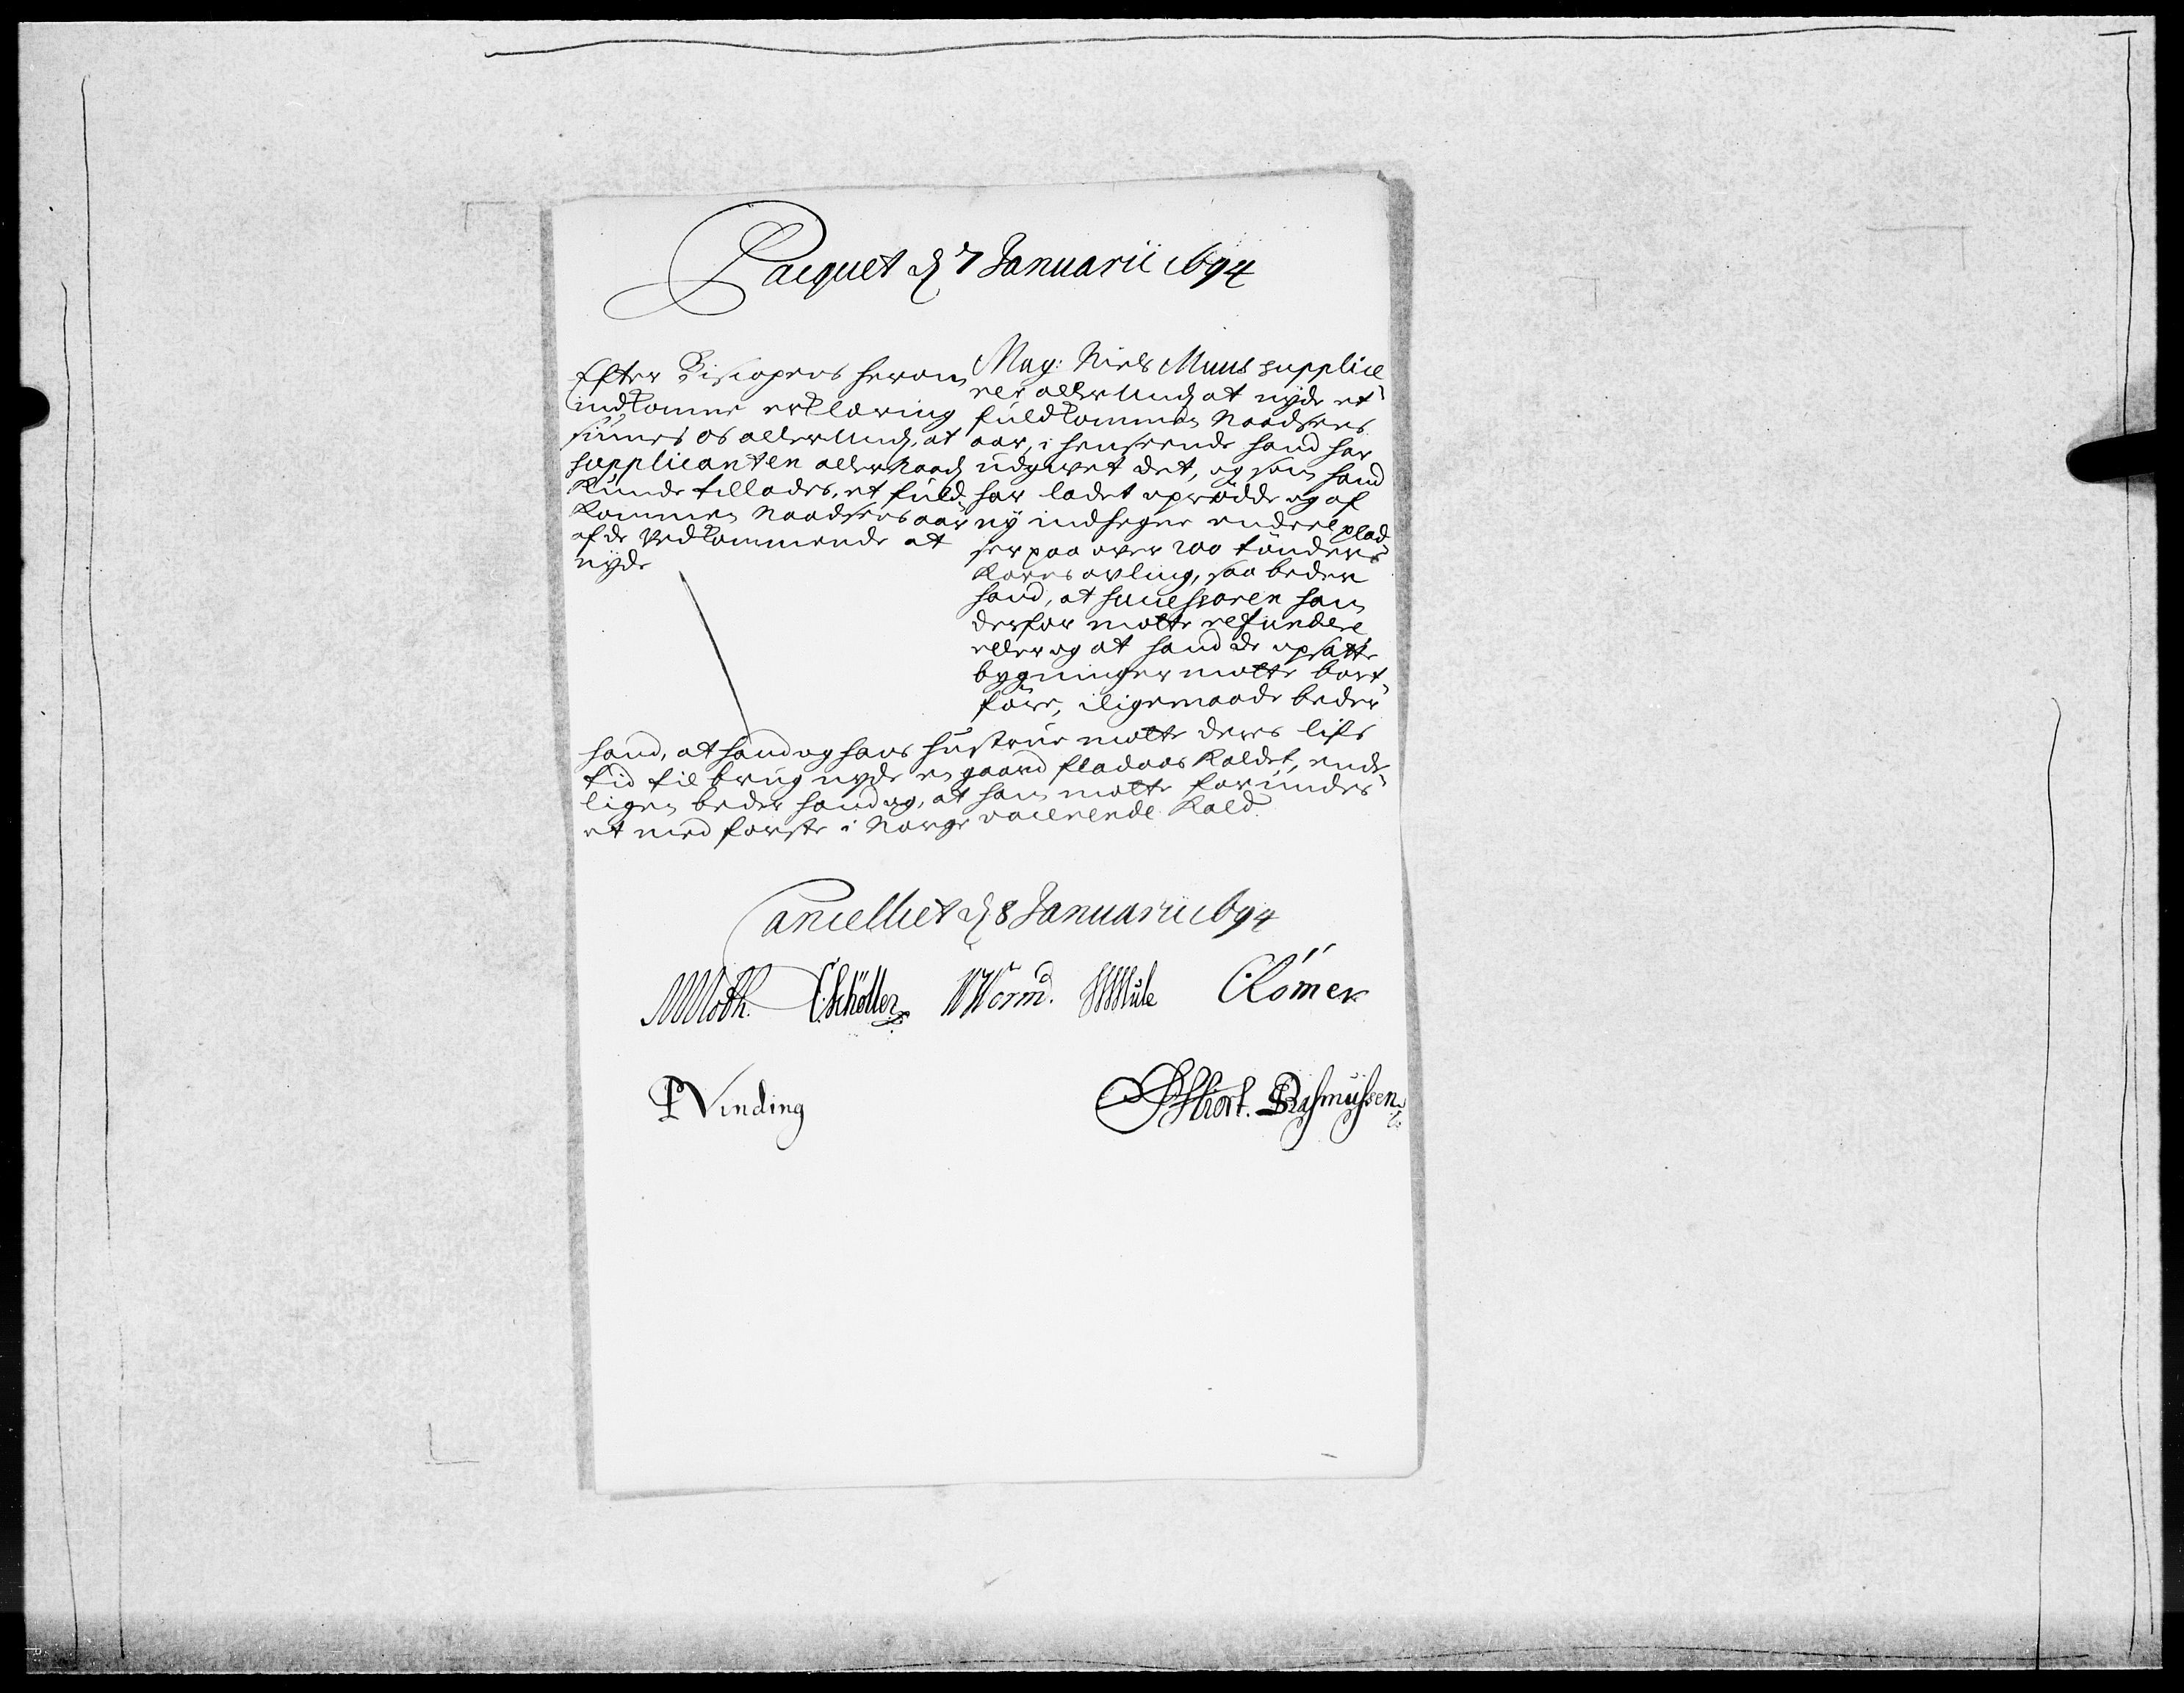 Pacquet d. 7 Januarii 1694
Efter Biscopens herom
indkomne erklæring
siunes os allerund. at
supplicanten allernaad.
kunde tillades, et fuld
kommen Naadsens aar
af de Vedkommende at
nyde
Mag: Niels Muus supplice
rer allerund. at nyde et
fuldkommen Naadsens
aar, i henseende hand har
udgivet det, og som hand
har ladet oprødde og af
ny indhegne endeel plad
ser paa over 200 tønders
Korns avling, saa beder
hand, at successoren ham
derfor motte refundere
eller og at hand de opsatte
bygninger motte bort
føre, iligemaade beder
hand, at hand og hans hustrue motte deres lifs
tid til brug nyde en gaard Fladaas kaldet, ende
ligen beder hand og, at ham motte forundes
et med første i Norge vacerende Kald.
Cancelliet d. 8 Januarii 1694
MMoth. CSchøller WWorm. Mule CRømer
PVinding Hiort. SRasmussen